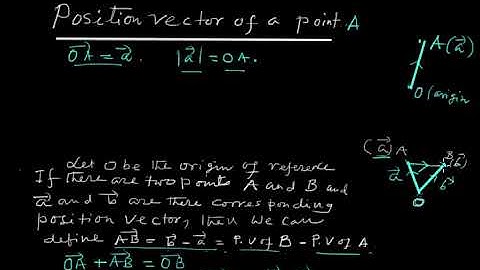 Position vector of a point A
\overrightarrow{OA} = \vec{a}. |\vec{a}| = OA.
A(\vec{a})
O (origin
Let O be the origin of reference
If there are two points A and B and
\vec{a} and \vec{b} are there corresponding
position vector, then we can
define \overrightarrow{AB} = \vec{b} - \vec{a} = P.V of B - P.V of A.
\overrightarrow{OA} + \overrightarrow{AB} = \overrightarrow{OB}
(\vec{a}) A
B(\vec{b})
\vec{a}
\vec{b}
O